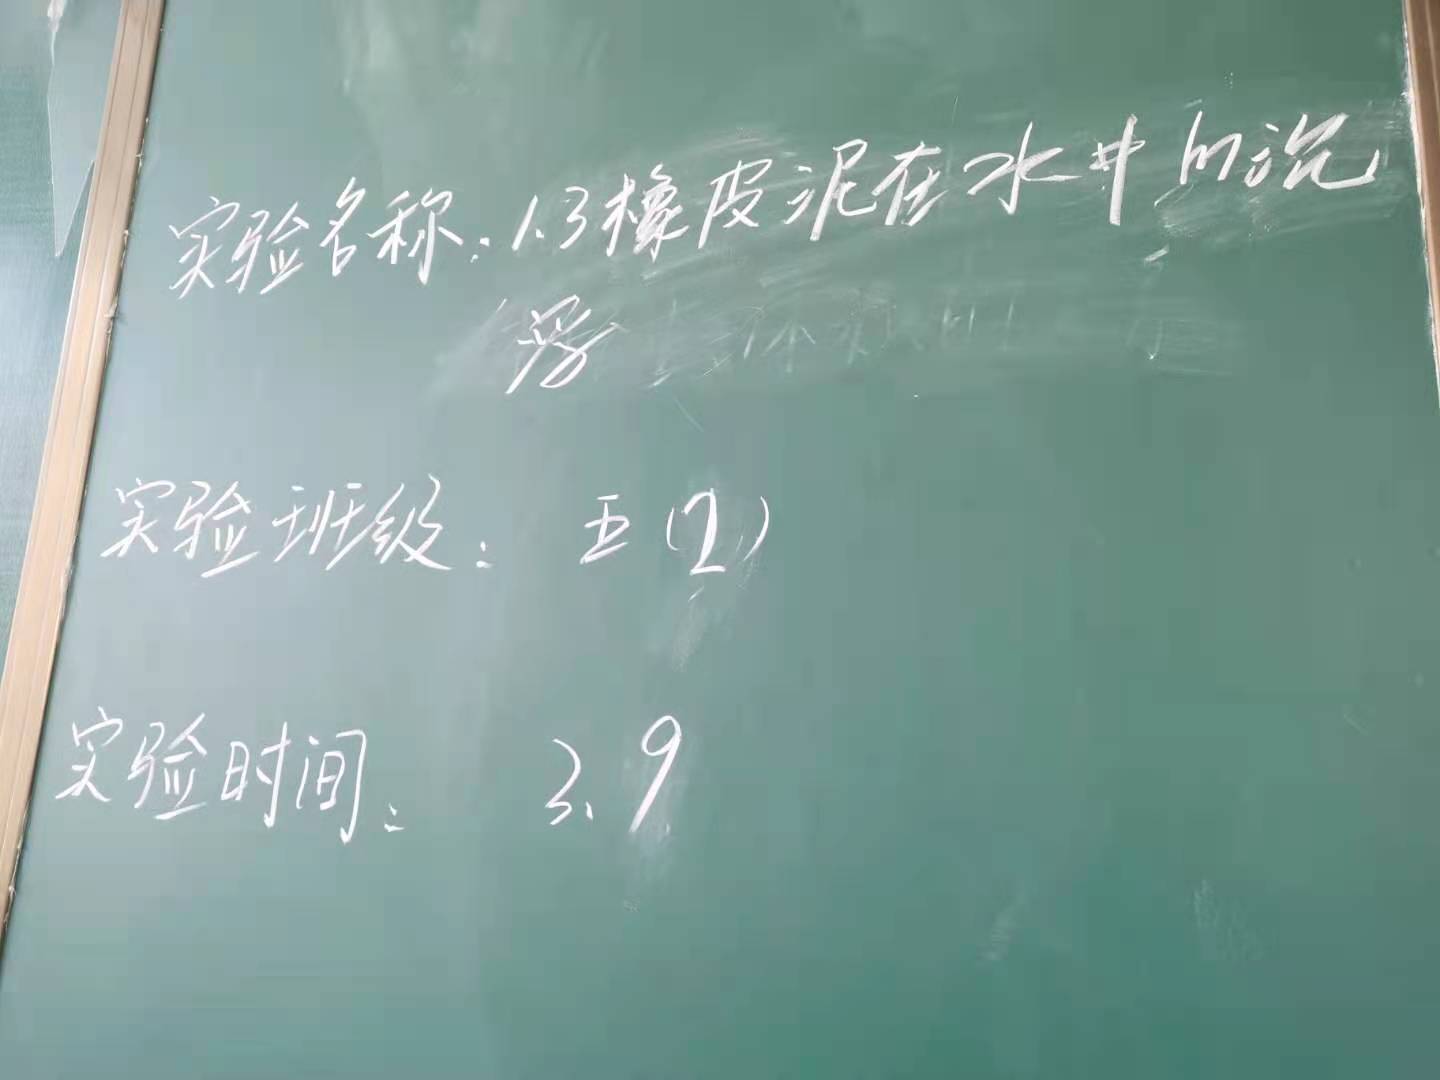 实验名称：1.3橡皮泥在水中的沉
浮
实验班级：五（2）
实验时间：3.9